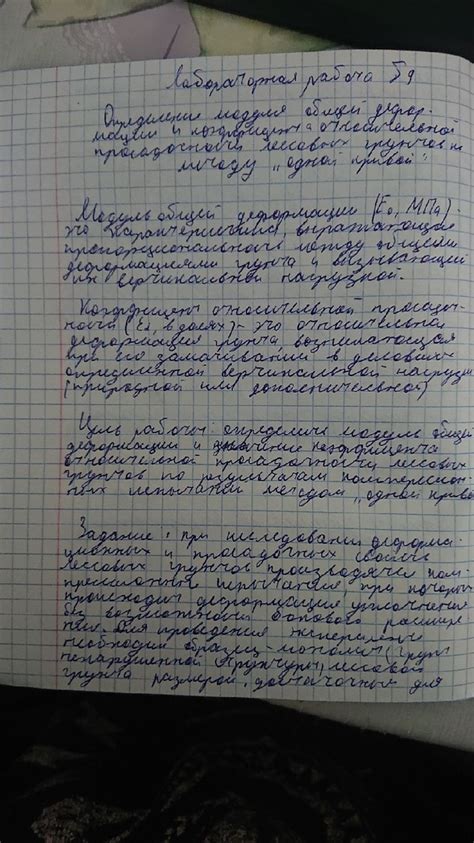 Лабораторная работа 5д
Определение модуля общей дефор-
мации и коэффициента относительной
просадочности лессовых грунтов по
методу „одной кривой"
Модуль общей деформации (E₀, МПа) -
это характеристика, выражающая
пропорциональность между общими
деформациями грунта и вызывающей
их вертикальной нагрузкой.
Коэффициент относительной просадоч-
ности (в долях) - это относительная
деформация грунта, возникающая
при его замачивании в условиях
определенной вертикальной нагрузки
(природной или дополнительной)
Цель работы: определить модуль общей
деформации и значение коэффициента
относительной просадочности лессовых
грунтов по результатам компрессион-
ных испытаний методом „одной криво
Задание: при исследовании деформа-
ционных и просадочных свойств
лессовых грунтов производятся ком-
прессионные испытания, при которых
происходит деформация уплотнения
без возможности бокового расшире
ния. Для проведения эксперимента
необходим образец-монолит (грунт
ненарушенной структуры) лессового
грунта размером, достаточным для